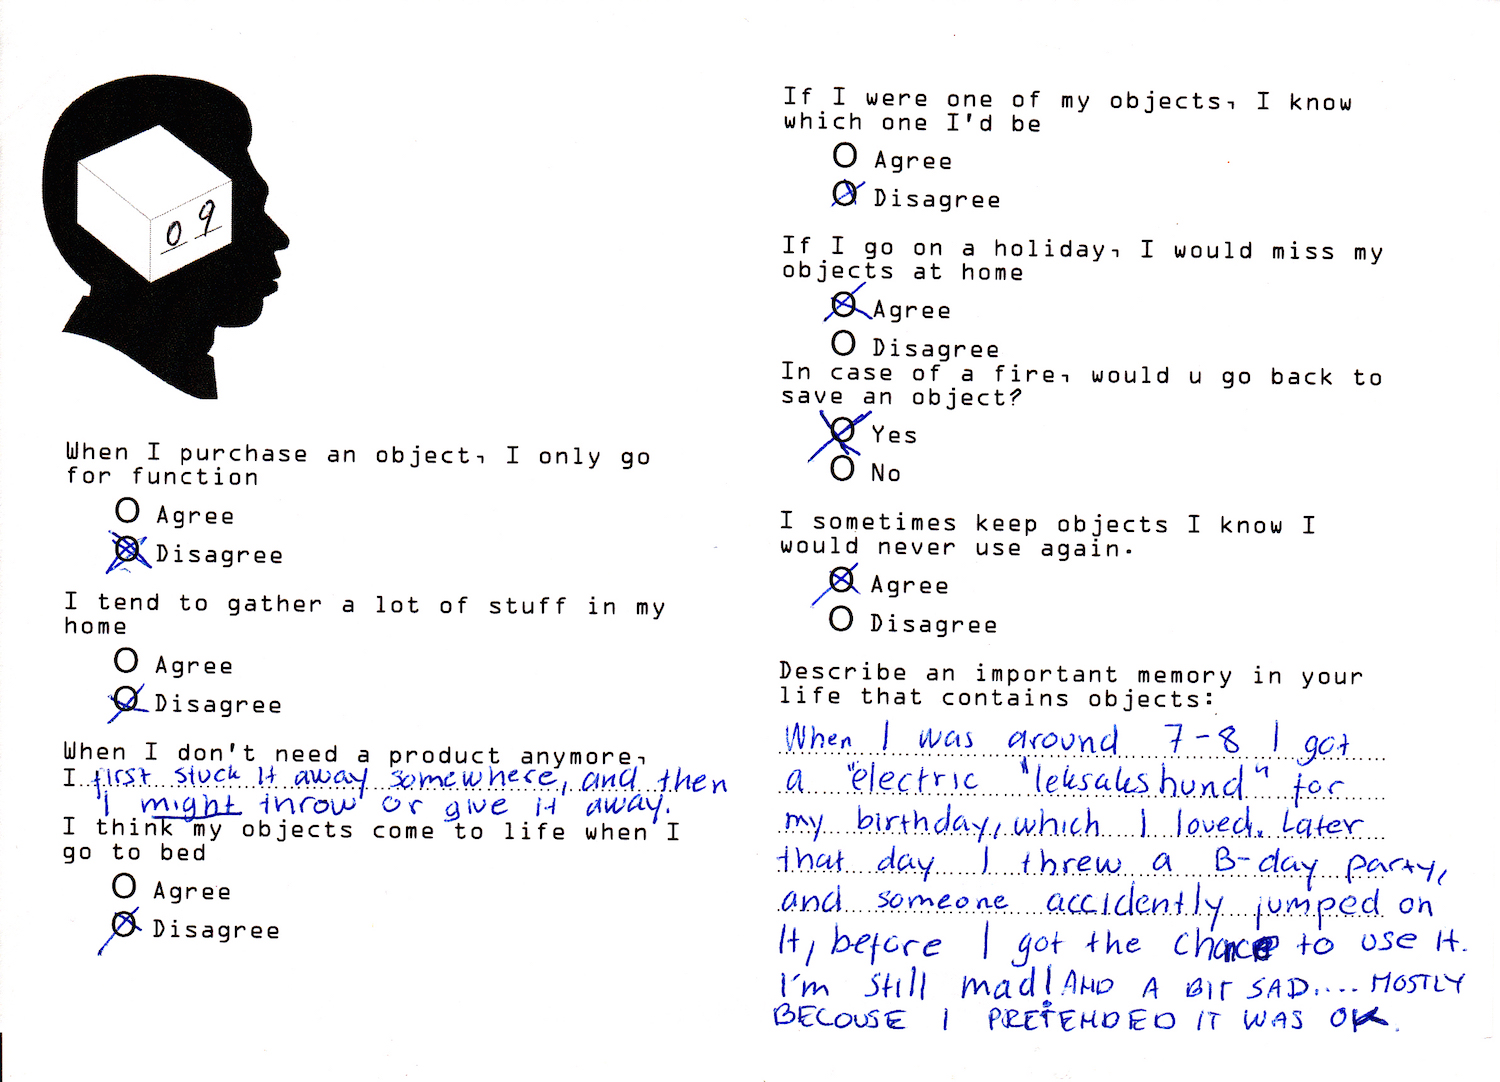 09
When I purchase an object, I only go
for function
Agree
Disagree
I tend to gather a lot of stuff in my
home
Agree
Disagree
When I don't need a product anymore,
I first stuck it away somewhere, and then
I might throw or give it away.
I think my objects come to life when I
go to bed
Agree
Disagree
If I were one of my objects, I know
which one I'd be
Agree
Disagree
If I go on a holiday, I would miss my
objects at home
Agree
Disagree
In case of a fire, would u go back to
save an object?
Yes
No
I sometimes keep objects I know I
would never use again.
Agree
Disagree
Describe an important memory in your
life that contains objects:
When I was around 7-8 I got
a "electric "leksakshund" for
my birthday, which I loved. Later
that day I threw a B-day party,
and someone accidently jumped on
it, before I got the chance to use it.
I'm still mad! AND A BIT SAD.... MOSTLY
BECOUSE I PRETENDED IT WAS OK.